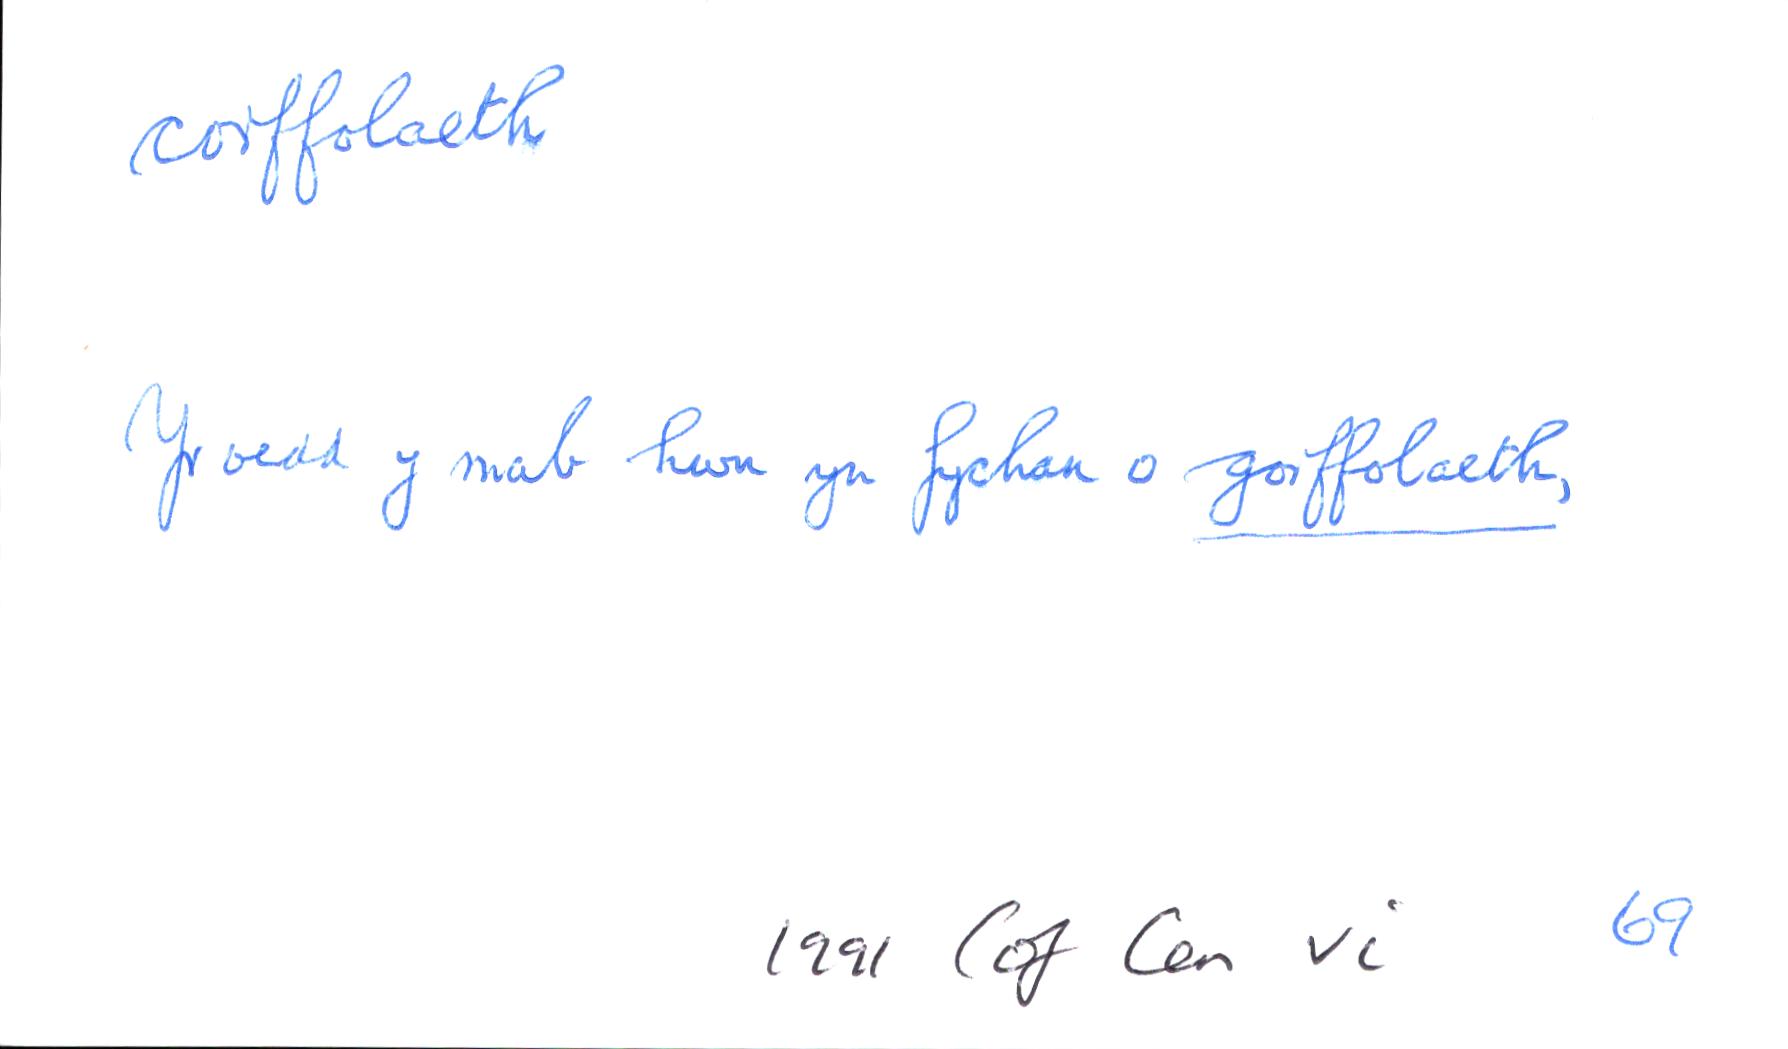 corffolaeth
Yr oedd y mab hwn yn fychan o gorffolaeth,
1991 Cof Cen vi 69